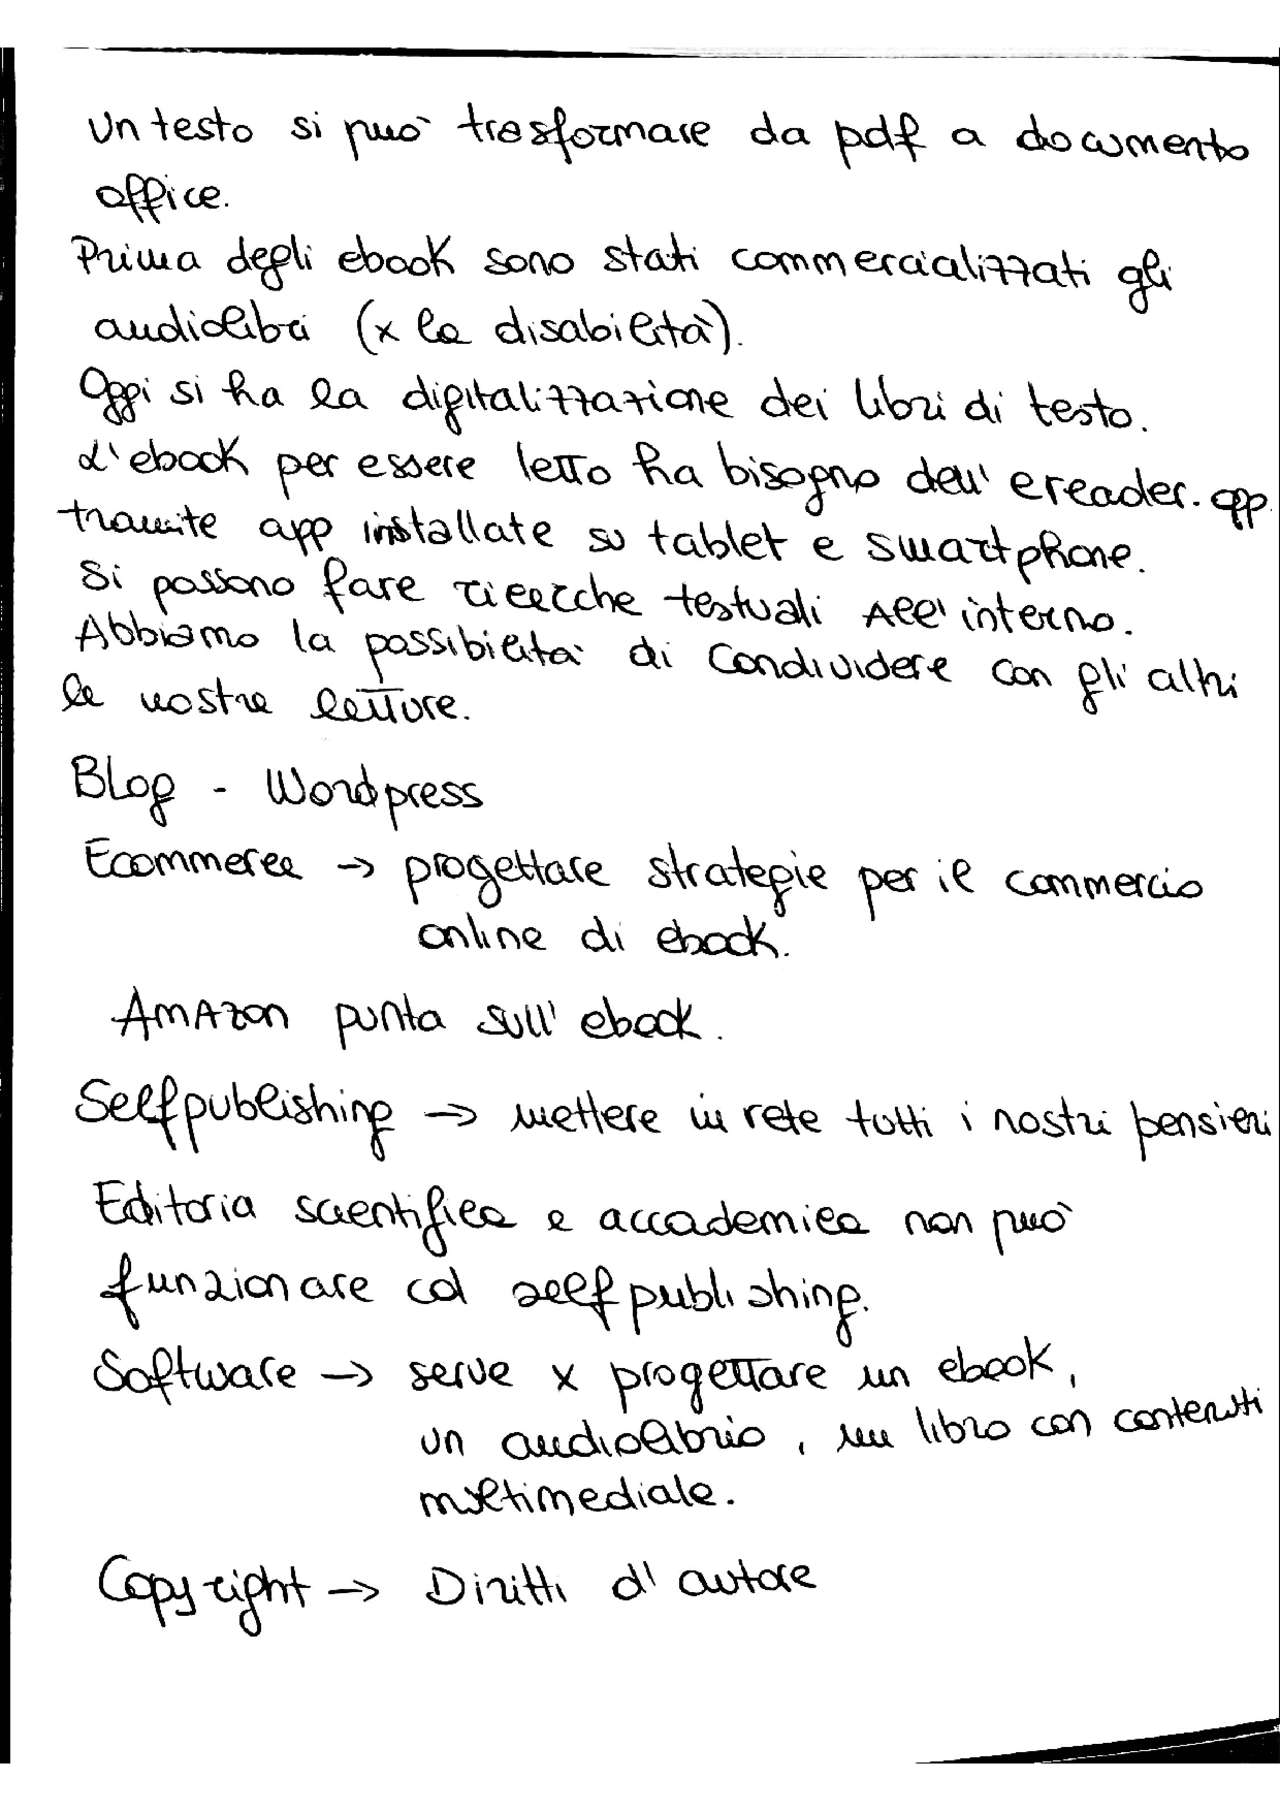 Un testo si può trasformare da pdf a documento
office.
Prima degli ebook sono stati commercializzati gli
audiolibri (x la disabilità).
Oggi si ha la digitalizzazione dei libri di testo.
L'ebook per essere letto ha bisogno dell'ereader. opp.
tramite app installate su tablet e smartphone.
Si possono fare ricerche testuali all'interno.
Abbiamo la possibilità di condividere con gli altri
le nostre letture.
Blog - Wordpress
Ecommerce → progettare strategie per il commercio
online di ebook.
Amazon punta sull'ebook.
Selfpublishing → mettere in rete tutti i nostri pensieri
Editoria scientifica e accademica non può
funzionare col selfpublishing.
Software → serve x progettare un ebook,
un audiolibrio, un libro con contenuti
multimediale.
Copyright → Diritti d'autore